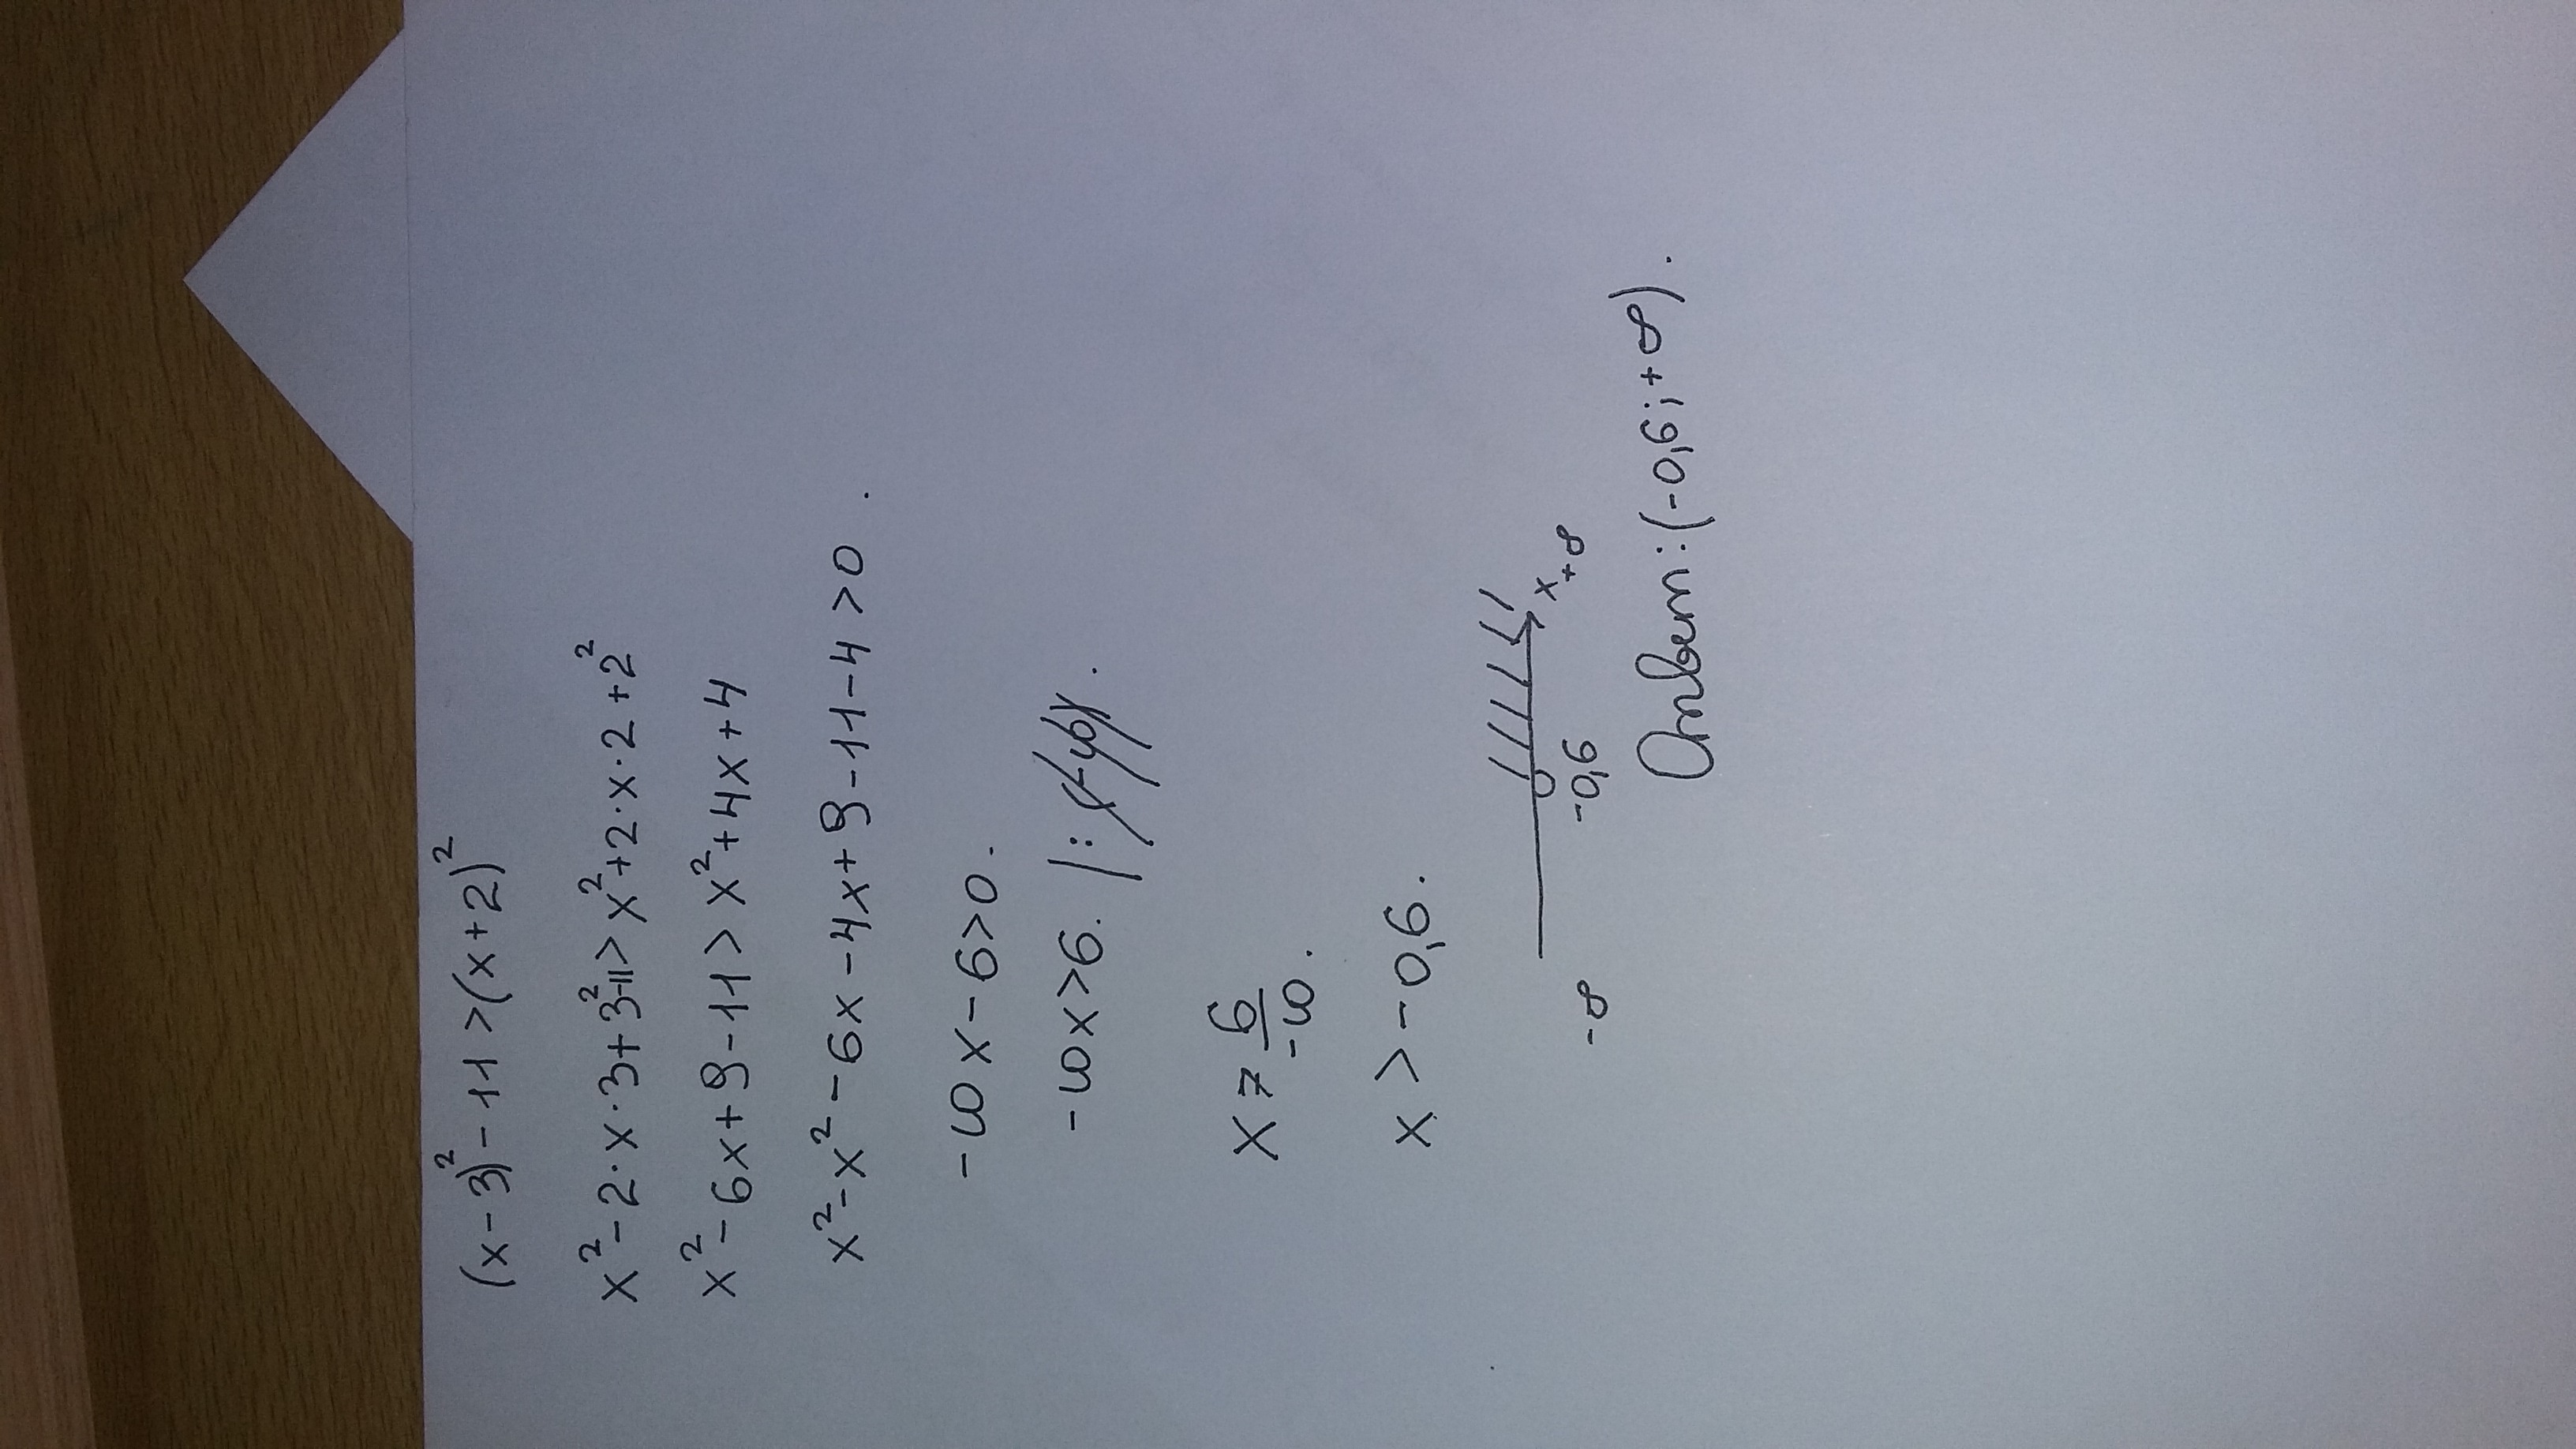 (x-3)²-11>(x+2)²
x²-2·x·3+3²-11>x²+2·x·2+2²
x²-6x+9-11>x²+4x+4
x²-x²-6x-4x+9-11-4>0.
-10x-6>0.
-10x>6. |:
x>6/-10.
x>-0,6.
-∞ -0,6 x +∞
Ответ: (-0,6;+∞).